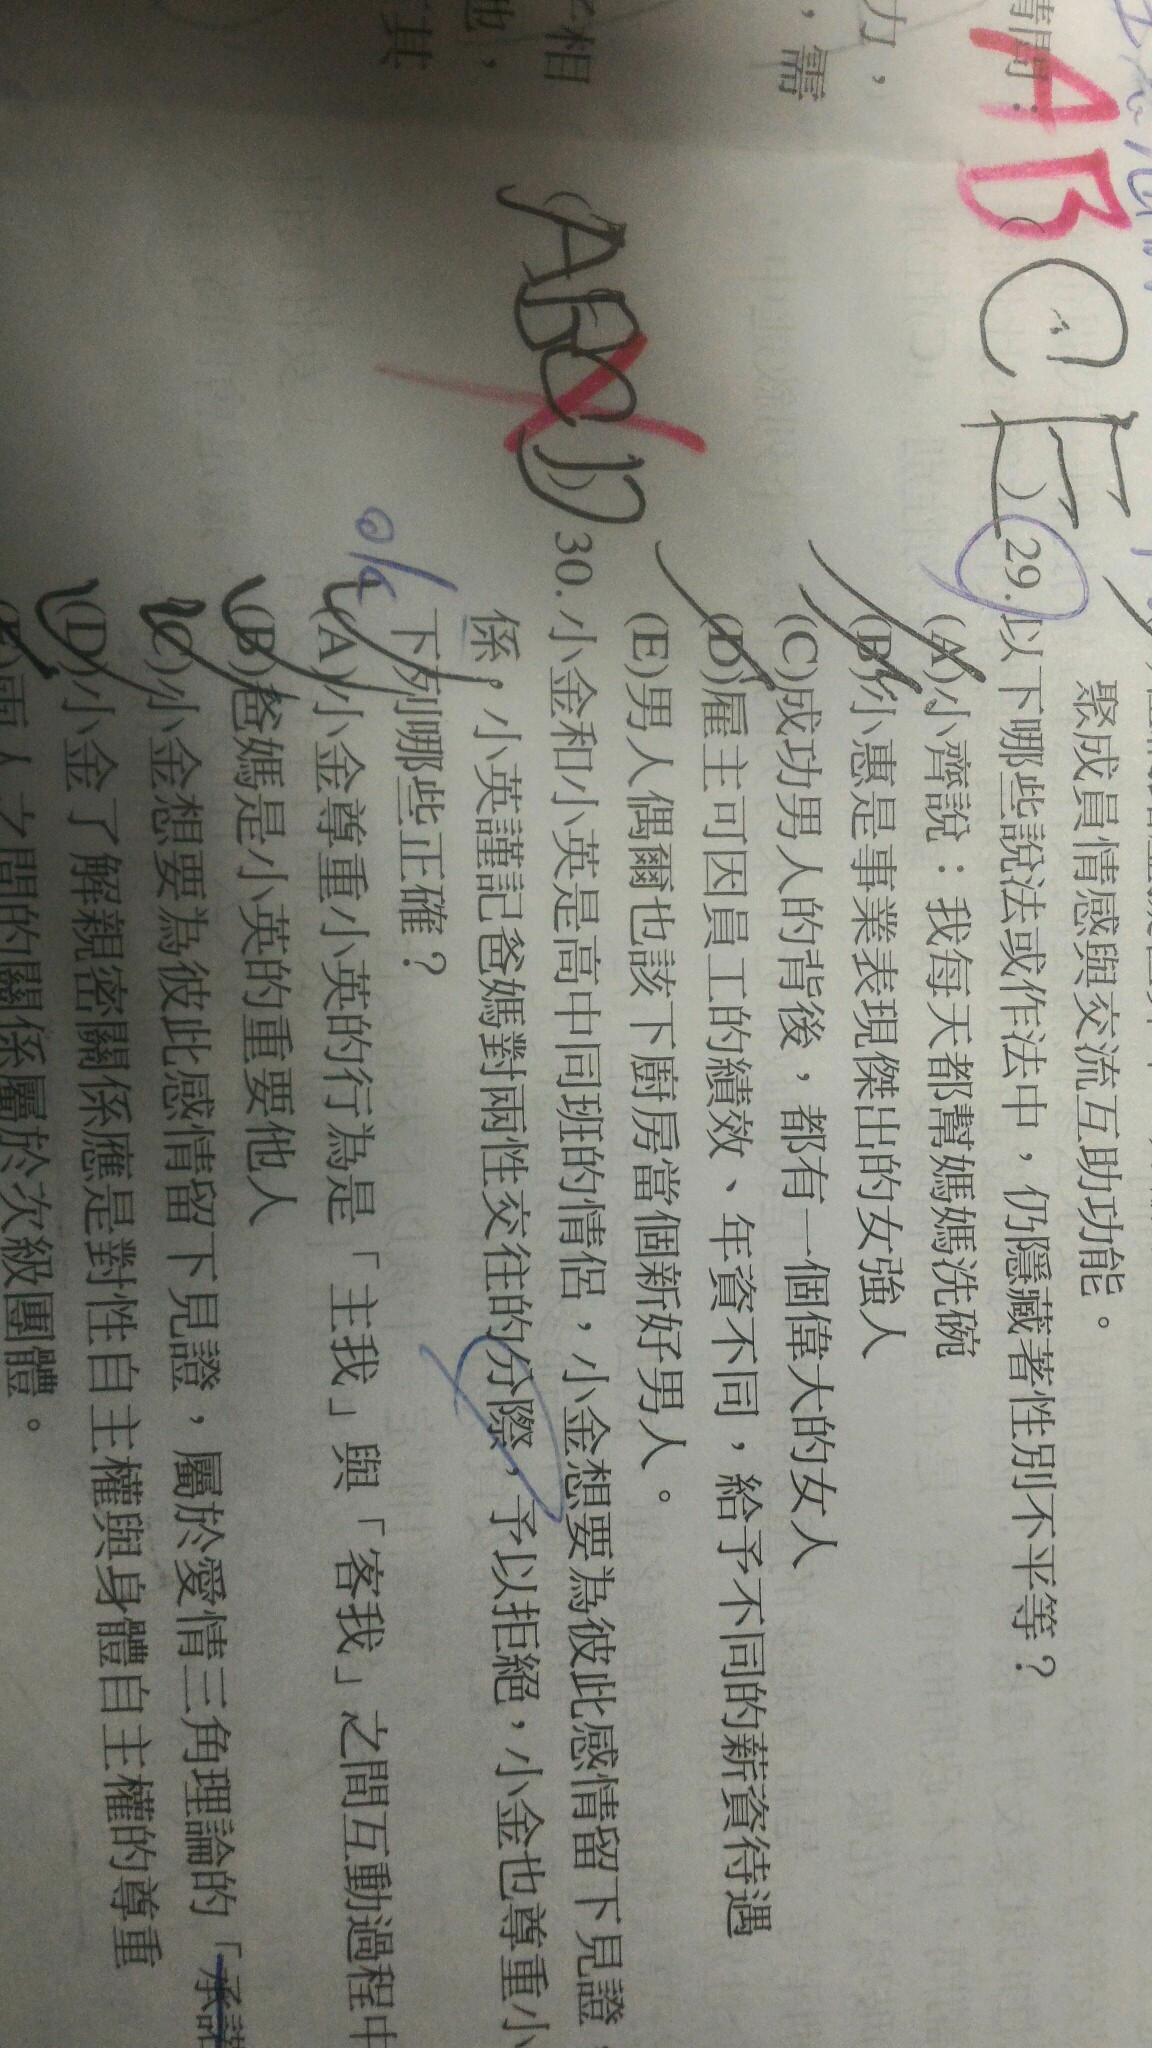 聚成員情感與交流互助功能。
ABCE
29.以下哪些說法或作法中，仍隱藏著性別不平等？
(A)小齊說：我每天都幫媽媽洗碗
(B)小惠是事業表現傑出的女強人
(C)成功男人的背後，都有一個偉大的女人
(D)雇主可因員工的績效、年資不同，給予不同的薪資待遇
(E)男人偶爾也該下廚房當個新好男人。
30.小金和小英是高中同班的情侶，小金想要為彼此感情留下見證
係。小英謹記爸媽對兩性交往的分際，予以拒絕，小金也尊重小
下列哪些正確？
(A)小金尊重小英的行為是「主我」與「客我」之間互動過程中
(B)爸媽是小英的重要他人
(C)小金想要為彼此感情留下見證，屬於愛情三角理論的「承諾
(D)小金了解親密關係應是對性自主權與身體自主權的尊重
兩人之間的關係屬於次級團體。